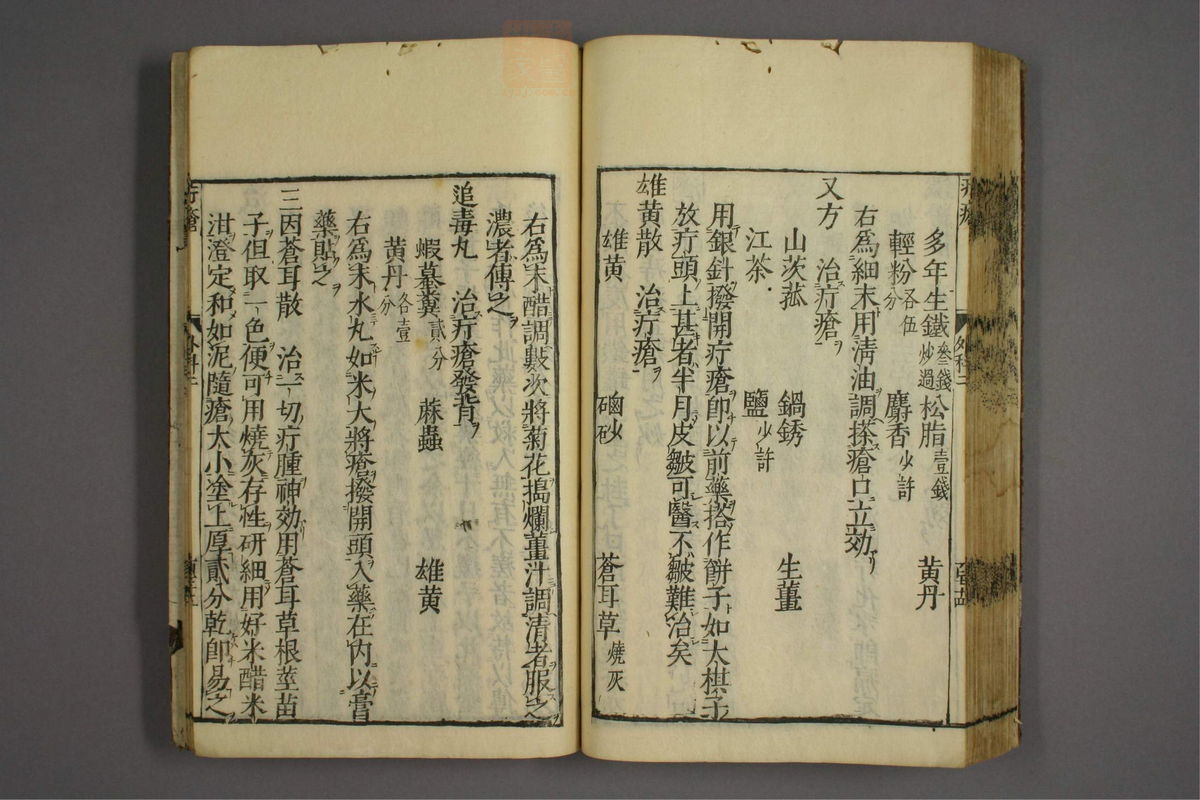 多年生鐵 叄錢炒過 松脂 壹錢 黃丹
輕粉 各伍分 麝香 少許
右爲細末用淸油調搽瘡口立効
又方 治疔瘡
山茨菰 鍋銹 生薑
江茶 鹽 少許
用銀針撥開疔瘡卽以前藥搭作餅子如大棋子
放疔頭上甚者半月皮皺可醫不皺難治矣
雄黃散 治疔瘡
雄黃 硇砂 蒼耳草 燒灰
右爲末醋調數次將菊花搗爛薑汁調清者服之
濃者傅之
追毒丸 治疔瘡發背
蝦蟇糞 貳分 蔴蟲 雄黃
黃丹 各壹分
右爲末水丸如米大將瘡撥開頭入藥在內以膏
藥貼之
三因蒼耳散 治一切疔腫神効用蒼耳草根莖苗
子但取一色便可用燒灰存性研細用好米醋米
泔澄定和如泥隨瘡大小塗上厚貳分乾卽易之